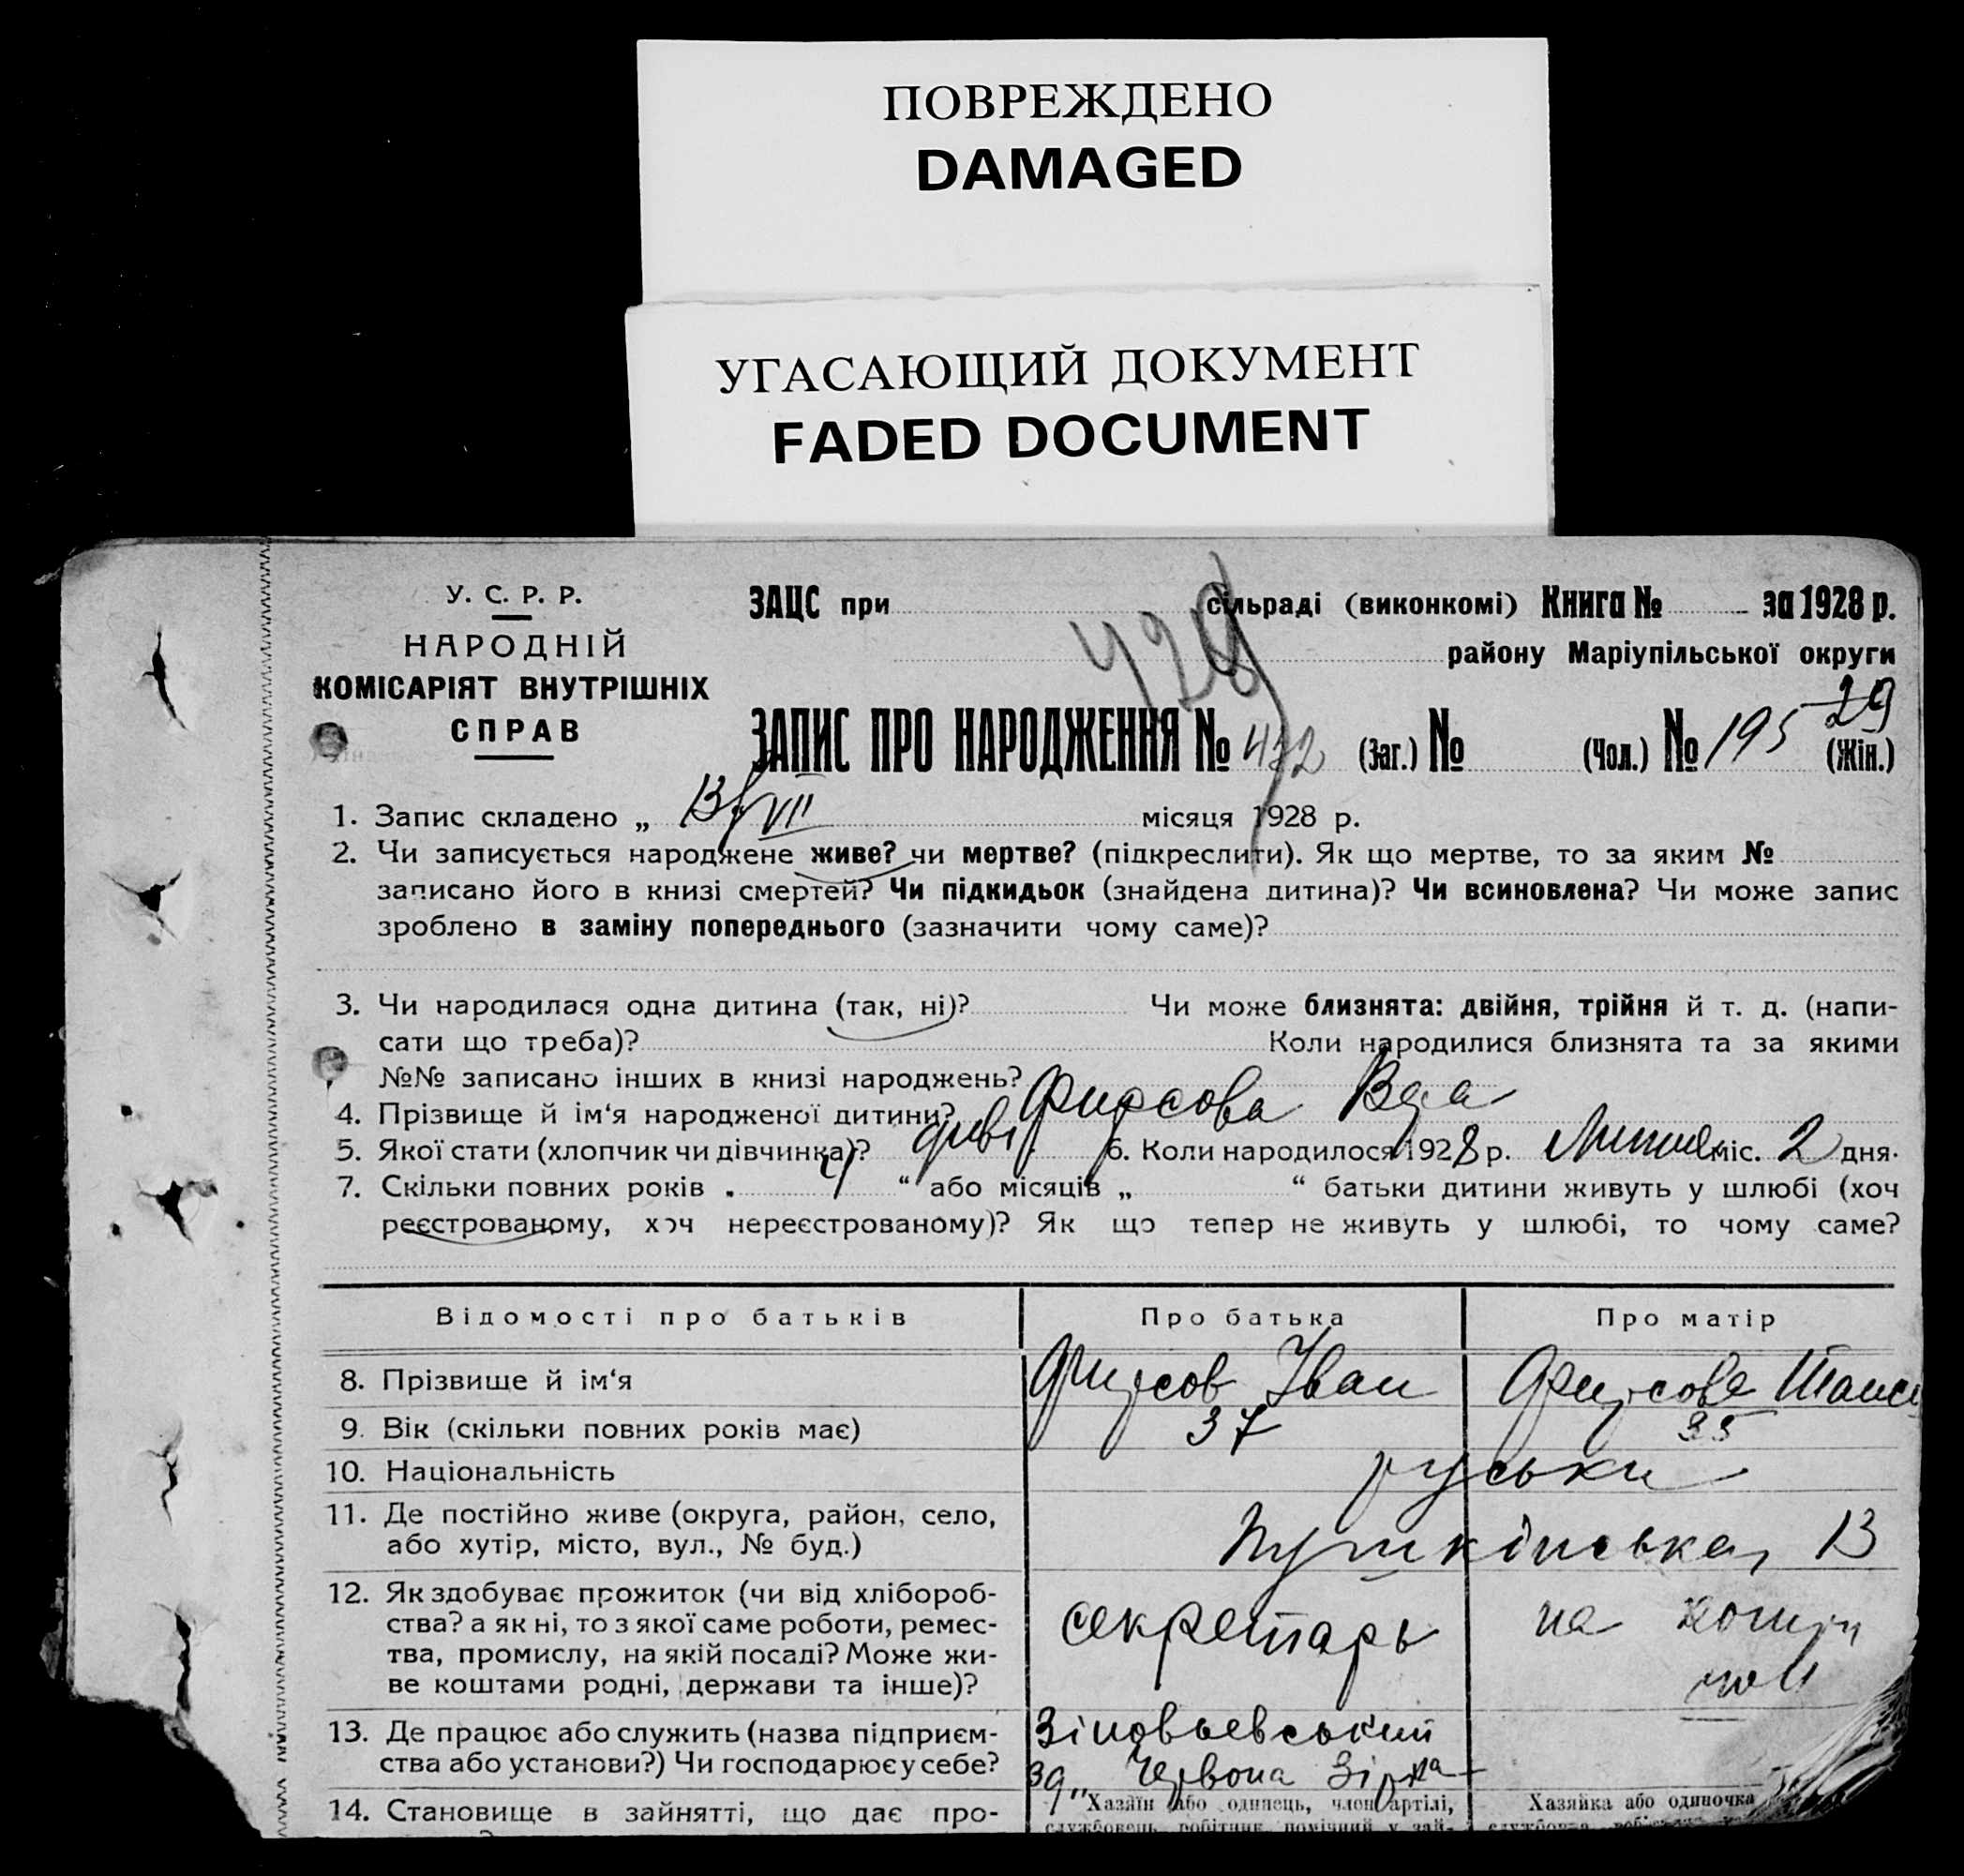 ПОВРЕЖДЕНО
DAMAGED
УГАСАЮЩИЙ ДОКУМЕНТ
FADED DOCUMENT
У. С. Р. Р.
НАРОДНІЙ
КОМІСАРІЯТ ВНУТРІШНІХ
СПРАВ
429
ЗАЦС при сільраді (виконкомі) Книга № за 1928 р.
району Маріупільської округи
29
ЗАПИС ПРО НАРОДЖЕННЯ № (Заг.) № (Чол.) № 195 (Жін.)
1. Запис складено „ 13/VII місяця 1928 р.
2. Чи записується народжене живе? чи мертве? (підкреслити). Як що мертве, то за яким №
записано його в книзі смертей? Чи підкидьок (знайдена дитина)? Чи всиновлена? Чи може запис
зроблено в заміну попереднього (зазначити чому саме)?
3. Чи народилася одна дитина (так, ні)? Чи може близнята: двійня, трійня й т. д. (напи-
сати що треба)? Коли народилися близнята та за якими
№№ записано інших в книзі народжень?
4. Прізвище й ім‘я народженої дитини? Фирсова
5. Якої стати (хлопчик чи дівчинка)? 6. Коли народилося 1928 р. Липня міс. 2 дня.
7. Скільки повних років „ 4 “ або місяців „ “ батьки дитини живуть у шлюбі (хоч
реєстрованому, хоч нереєстрованому)? Як що тепер не живуть у шлюбі, то чому саме?
Відомості про батьків Про батька Про матір
8. Прізвище й ім‘я Фирсов Іван Фирсова
9. Вік (скільки повних років має) 37 35
10. Національність руськи
11. Де постійно живе (округа, район, село,
або хутір, місто, вул., № буд.) Пушкінська, 13
12. Як здобуває прожиток (чи від хлібороб-
ства? а як ні, то з якої саме роботи, ремес-
тва, промислу, на якій посаді? Може жи-
ве коштами родні, держави та інше)? секретарь на
13. Де працює або служить (назва підприєм-
ства або установи?) Чи господарює у себе? Зіновьевський
зд „Червона Зірка
14. Становище в зайнятті, що дає про-
Хазяїн або одинець, член артілі,
службовець, робітник, помічний у зай-
Хазяйка або одиночка